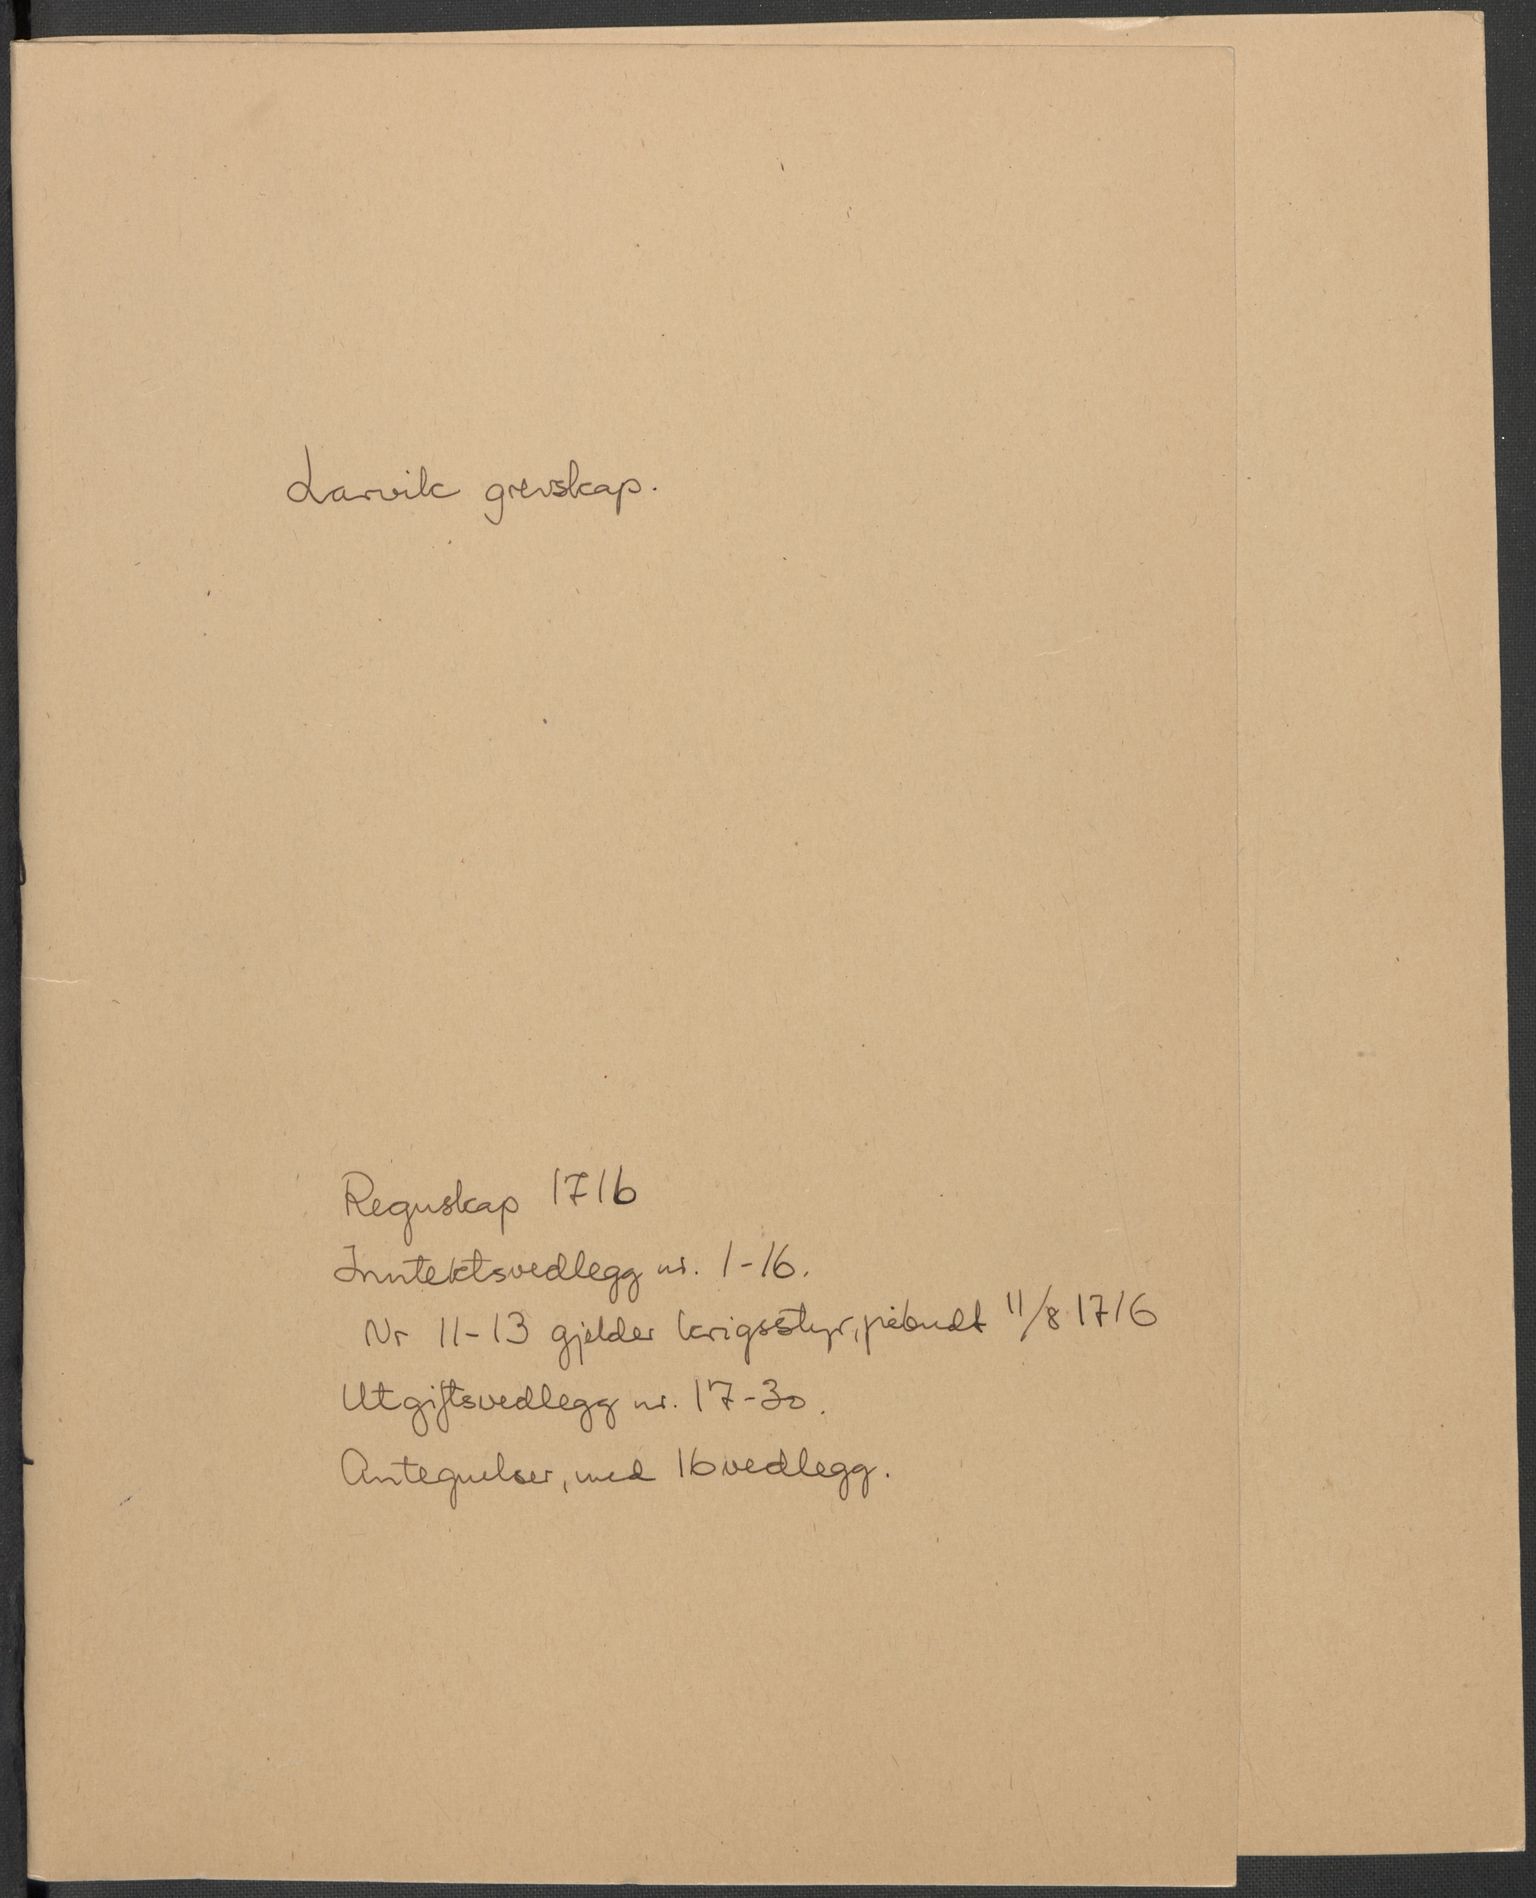 Larvik grevskap.
Regnskap 1716
Inntektsvedlegg nr. 1-16.
Nr 11-13 gjelder krigsstyr, påbudt 11/8 1716
Utgiftsvedlegg nr. 17-30.
Antegnelser, med 16 vedlegg.